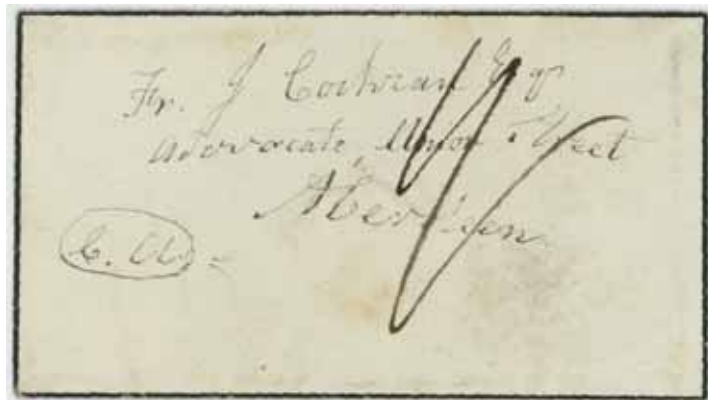 Fr. J Cochran Esqr
Advocate, Union Street
Aberdeen